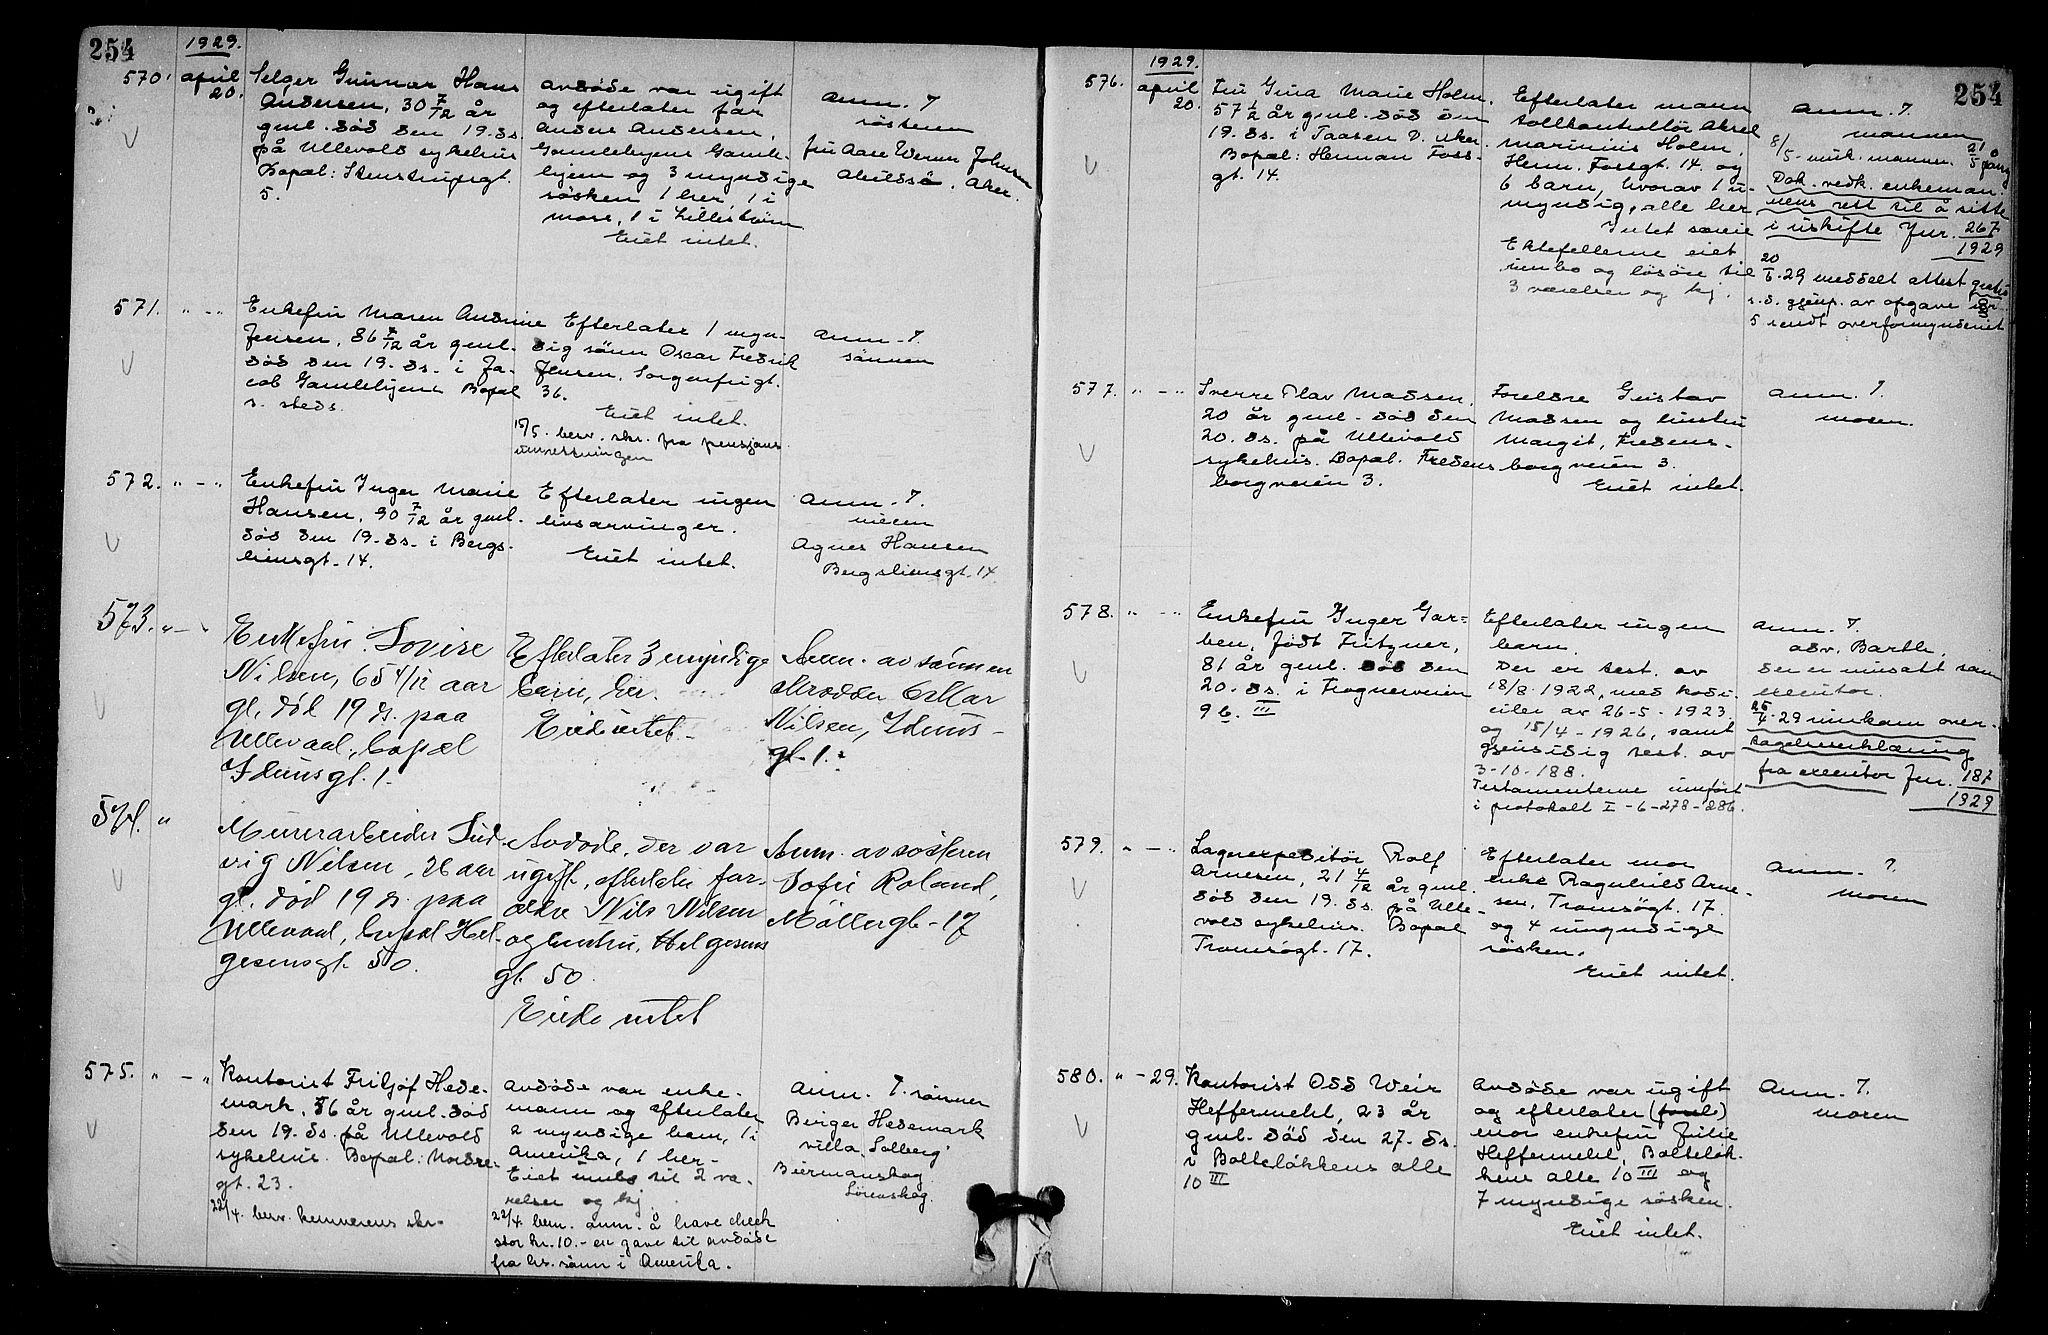 254
1929.
570. april 20.
Selger Gunnar Hans
Andersen, 30 7/12 år
gml. død den 19. ds.
på Ullevold sykehus
Bopæl: Stenstrupsgt.
5.
avdøde var ugift
og efterlater far
Anders Andersen,
Gamlehjem
og 3 myndige
søsken 1 her, 1 i
Moss, 1 i Lillestrøm
Eiet intet.
Anm. ?
søsteren
fru Aase Werner Johnsen
Aker.
571. " - "
Enkefru Maren Andrine
Jensen, 86 7/12 år gml.
død den 19. ds. i Ja-
cob Gamlehjem Bopæl
s. steds.
Efterlater 1 myn-
dig sønn Oscar Fredrik
Jensen, Sorgenfrigt.
36.
Eiet intet.
15/5. besv. skr. fra pensjons
innretningen
Anm. ?
sønnen
572. " - "
Enkefru Inger Marie
Hansen, 90 7/12 år gml.
død den 19. ds. i Bergs-
liensgt. 14.
Efterlater ingen
livsarvinger.
Eiet intet.
Anm. ?
niesen
Agnes Hansen
Bergsliensgt. 14
573. " - "
Enkefru Lovise
Nilsen, 65 4/12 aar
gl. død 19 ds. paa
Ullevaal, bopæl
Idunsgt. 1.
Efterlater 3 myndige
barn, her.
Eiede intet.
Anm. av sønnen
skrædder Oskar
Nilsen, Iduns-
gt. 1.
574. "
Murerarbeider Lud-
vig Nilsen, 26 aar
gl. død 19 ds. paa
Ullevaal, bopæl Hel-
gesensgt. 50.
Avdøde, der var
ugift, efterlater for-
ældre Nils Nilsen
og hustru, Helgesens
gt. 50.
Eiede intet
Anm. av søsteren
Sofie Roland,
Møllergt. 17
575. " - "
Kontorist Fritjof Hede-
mark, 56 år gml. død
den 19. ds. på Ullevold
sykehus. Bopæl: Nordre-
gt. 23.
22/4. besv. kemnerens skr.
avdøde var enke-
mann og efterlater
2 myndige barn, 1 i
Amerika, 1 her.
Eiet innbo til 2 væ-
relser og kj.
22/4. bem. anm. å have check
stor kr. 10.- en gave til avdøde
fra hs. sønn i Amerika.
Anm. ? sønnen
Birger Hedemark
villa "Solberg"
Biermanskog
Lørenskog
254
1929.
576. april 20.
Fru Gina Marie Holm,
57 1/2 år gml. død den
19. ds. i Taasen D. Aker.
Bopæl: Herman Foss-
gt. 14.
Efterlater mann
tollkontrollør Aksel
Marinius Holm,
Herm. Fossgt. 14. og
6 barn, hvorav 1 u-
myndig, alle her
Intet særeie
Ektefellerne eiet
innbo og løsøre til
3 værelser og kj.
Anm. ?
mannen
8/5. innk. mannen
Dok. vedk. enkeman-
nens rett til å sitte
i uskifte Jnr. 267
1929
meddelt attest gratis
s. d. gjenp. av opgave
sendt overformynderiet
577. " - "
Sverre Olav Madsen,
20 år gml. død den
20. ds. på Ullevold
sykehus. Bopæl. Fredens
borgveien 3.
Foreldre Gustav
Madsen og hustru
Margit, Fredens-
borgveien 3.
Eiet intet.
Anm. ?
moren.
578. " - "
Enkefru Inger Gar-
ben, født Fritzner,
81 år gml. død den
20. ds. i Frognerveien
9 b. III
Efterlater ingen
barn.
Der er test. av
18/8. 1922, med kodi-
ciler av 26-5-1923
og 15/4-1926, samt
gjensidig test. av
3-10-188.
Testamenterne innført
i protokoll I-6-278-286.
Anm. ?
adv. Barth,
der er innsatt som
executor.
25/4-29 innkom over-
tagelseserklæring
fra executor Jnr. 187
1929
579. " - "
Lagerexpeditør Rolf
Arnesen, 21 4/12 år gml.
død den 19. ds. på Ulle-
vold sykehus. Bopæl
Tromsøgt. 17.
Efterlater mor
enke Ragnhild Arne-
sen, Tromsøgt. 17.
og 4 umyndige
søsken.
Eiet intet.
Anm. ?
moren
580. " - 29.
Kontorist Odd Weir
Heffermehl, 23 år
gml. død den 27. ds.
i Bolteløkkens alle
10 III
Avdøde var ugift
og efterlater
mor enkefru Julie
Heffermehl, Bolteløk-
kens alle 10 III og
7 myndige søsken.
Eiet intet.
Anm. ?
moren